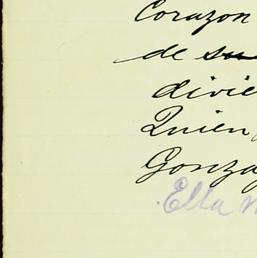 Corazon
de su
divie
Quien
Gonza
Ella